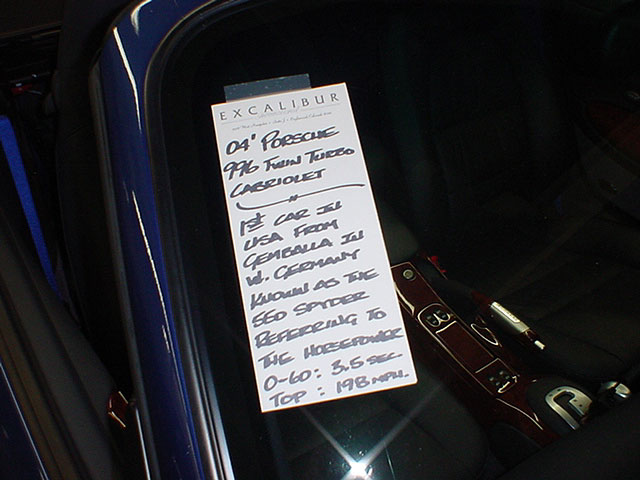 EXCALIBUR
04' PORSCHE
996 TWIN TURBO
CABRIOLET
1ST CAR IN
USA FROM
GEMBALLA IN
W. GERMANY
KNOWN AS THE
550 SPYDER
REFERRING TO
THE HORSEPOWER
0-60: 3.5 SEC.
TOP: 198 MPH.